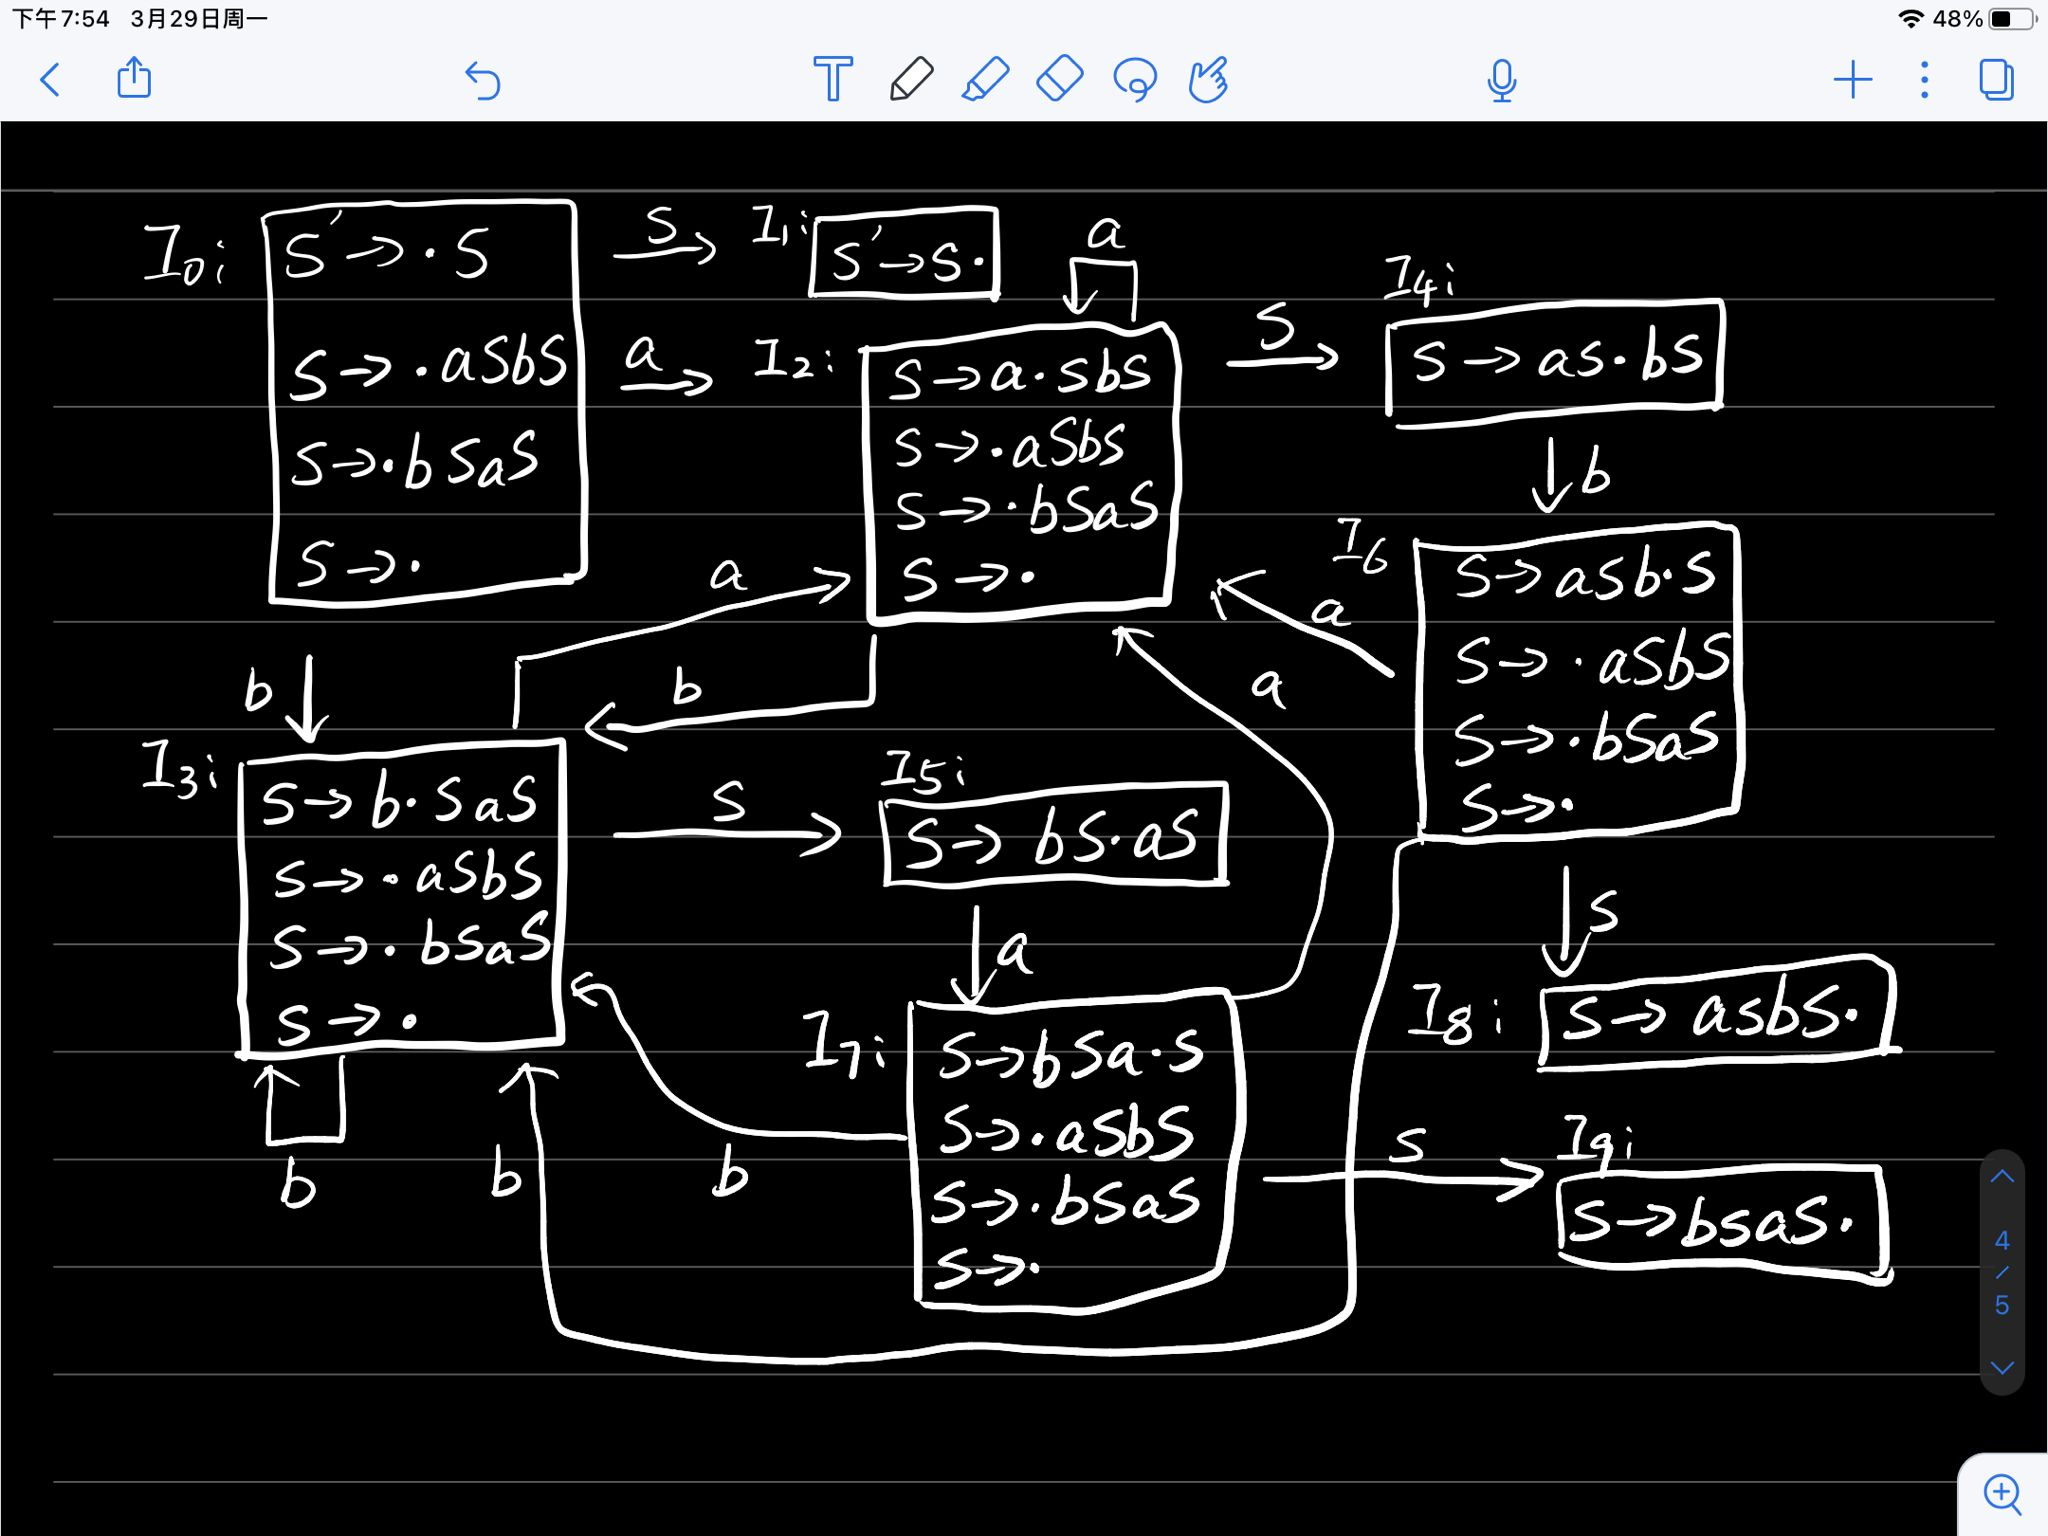 下午7:54 3月29日周一
48%
I₀:
S'→·S
S→·aSbS
S→·bSaS
S→·
S
I₁:
S'→S·
a
a
I₂:
S→a·SbS
S→·aSbS
S→·bSaS
S→·
S
I₄:
S→aS·bS
b
I₆
S→aSb·S
S→·aSbS
S→·bSaS
S→·
a
a
b
a
b
I₃:
S→b·SaS
S→·aSbS
S→·bSaS
S→·
S
I₅:
S→bS·aS
a
S
I₈:
S→aSbS·
I₇:
S→bSa·S
S→·aSbS
S→·bSaS
S→·
b
b
b
S
I₉:
S→bSaS·
4
/
5